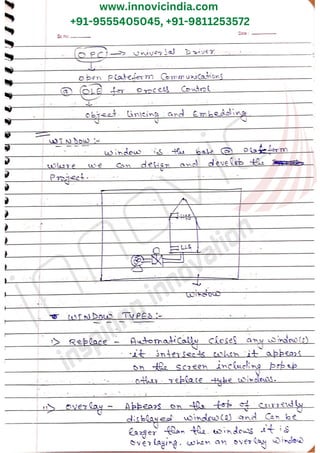 www.innovicindia.com
+91-9555405045, +91-9811253572
Sr. No.
Date :
OPC → Universal Driver
open Plateform Communications
@ OLE for Process Control
object Linking and Embedding
WINDOW :-
Window is the base @ plateform
where we can design and develop the
Project.
HLS
LLS
Window
* WINDOW TYPES :-
i> Replace - Automatically closes any window(s)
it intersects when it appears
on the screen including popup
other replace type windows.
ii> overlay - Appears on the top of currently
displayed window(s) and can be
larger than the windows it is
overlaying. when an overlay window
innovic
inspiring innovation